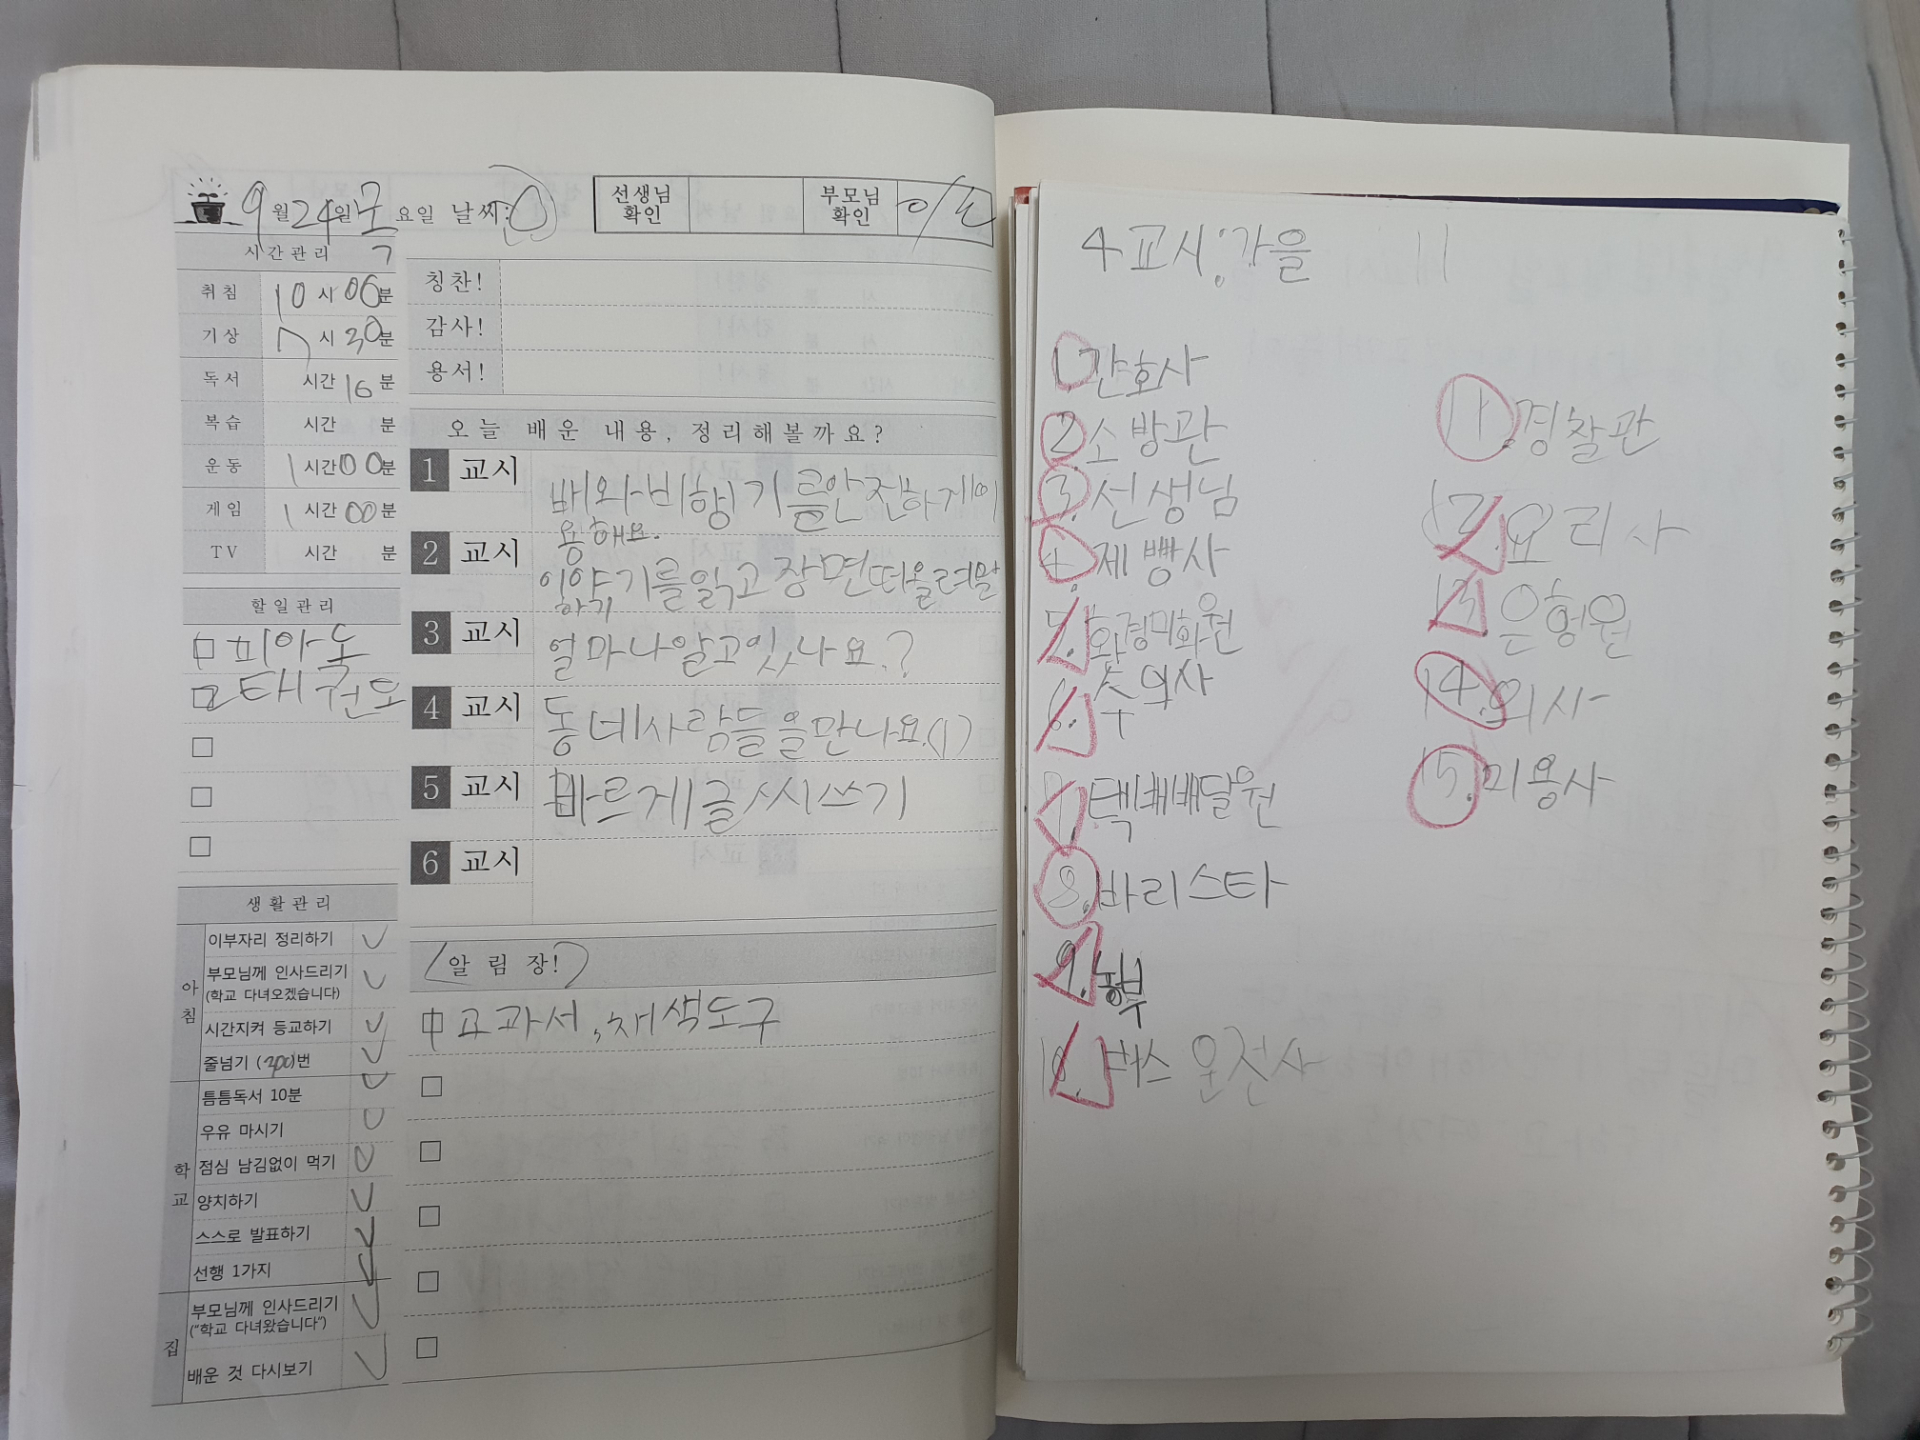 9월 24일 목요일 날씨:
선생님 확인
부모님 확인
시간관리
취침 10시 06분
기상 7시 30분
독서 시간 16분
복습 시간 분
운동 1시간 00분
게임 1시간 00분
TV 시간 분
할일관리
피아노
태권도
생활관리
아침
이부자리 정리하기
부모님께 인사드리기
(학교 다녀오겠습니다)
시간지켜 등교하기
줄넘기 (300)번
학교
틈틈독서 10분
우유 마시기
점심 남김없이 먹기
양치하기
스스로 발표하기
선행 1가지
집
부모님께 인사드리기
("학교 다녀왔습니다")
배운 것 다시보기
칭찬!
감사!
용서!
오늘 배운 내용, 정리해볼까요?
1 교시 배와비행기를안전하게이
용해요.
2 교시 이야기를읽고장면떠올려말
하기
3 교시 얼마나알고있나요?
4 교시 동네사람들을만나요(1)
5 교시 바르게글씨쓰기
6 교시
알림장!
교과서, 채색도구
4교시:가을 11
1.간호사
2.소방관
3.선생님
4.제빵사
5.환경미화원
6.수의사
7.택배배달원
8.바리스타
9.농부
10.버스 운전사
11.경찰관
12.요리사
13.은형원
14.의사
15.미용사